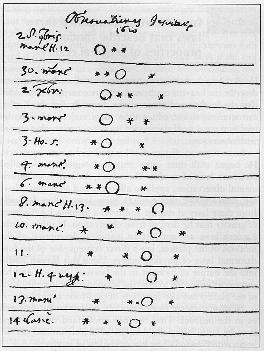 Observationes Jesuitae
1610
2. S. 9bris.
mane H. 12 O **
30. mane ** O *
2. xbris O ** *
3. mane O * *
3. Ho. 5. * O *
4. mane. * O **
6. mane ** O *
8. mane H. 13. * * * O
10. mane. * * * O *
11. * * O *
12. H. 4 vesp. * O *
13. mane * ** O *
14 Casse. * * * O *